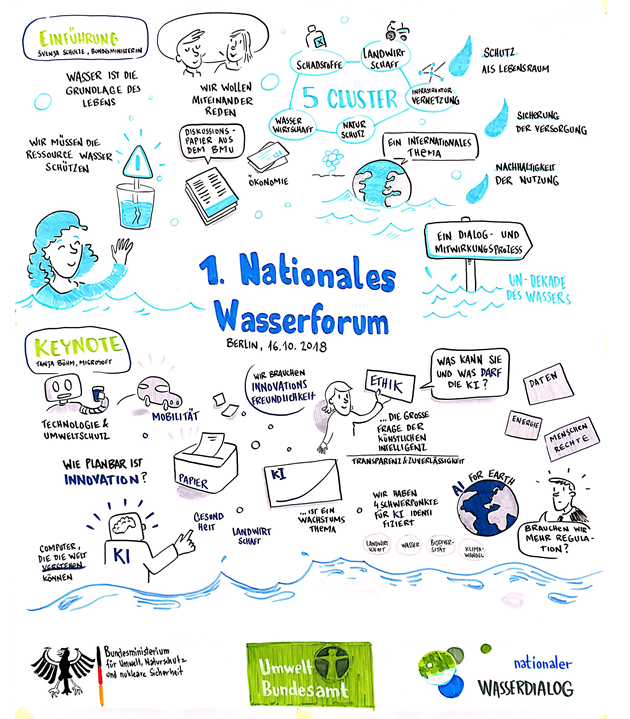 EINFÜHRUNG
SVENJA SCHULZE, BUNDESMINISTERIN
WASSER IST DIE
GRUNDLAGE DES
LEBENS
WIR MÜSSEN DIE
RESSOURCE WASSER
SCHÜTZEN
WIR WOLLEN
MITEINANDER
REDEN
DISKUSSIONS-
PAPIER AUS
DEM BMU
ÖKONOMIE
5 CLUSTER
SCHADSTOFFE
LANDWIRT
SCHAFT
INFRASTRUKTUR
VERNETZUNG
NATUR
SCHUTZ
WASSER
WIRTSCHAFT
EIN INTERNATIONALES
THEMA
SCHUTZ
ALS LEBENSRAUM
SICHERUNG
DER VERSORGUNG
NACHHALTIGKEIT
DER NUTZUNG
EIN DIALOG- UND
MITWIRKUNGSPROZESS
UN-DEKADE
DES WASSERS
1. Nationales
Wasserforum
BERLIN, 16.10. 2018
KEYNOTE
TANJA BÖHM, MICROSOFT
TECHNOLOGIE &
UMWELTSCHUTZ
MOBILITÄT
WIR BRAUCHEN
INNOVATIONS
FREUNDLICHKEIT
ETHIK
WAS KANN SIE
UND WAS DARF
DIE KI?
...DIE GROSSE
FRAGE DER
KÜNSTLICHEN
INTELLIGENZ
TRANSPARENZ & ZUVERLÄSSIGKEIT
DATEN
ENERGIE
MENSCHEN
RECHTE
WIE PLANBAR IST
INNOVATION?
PAPIER
KI
...IST EIN
WACHSTUMS
THEMA
GESUND
HEIT
LANDWIRT
SCHAFT
COMPUTER,
DIE DIE WELT
VERSTEHEN
KÖNNEN
KI
WIR HABEN
4 SCHWERPUNKTE
FÜR KI IDENTI
FIZIERT
LANDWIRT
SCHAFT
WASSER
BIODIVER-
SITÄT
KLIMA-
WANDEL
AI FOR EARTH
BRAUCHEN WIR
MEHR REGULA-
TION?
Bundesministerium
für Umwelt, Naturschutz
und nukleare Sicherheit
Umwelt
Bundesamt
nationaler
WASSERDIALOG